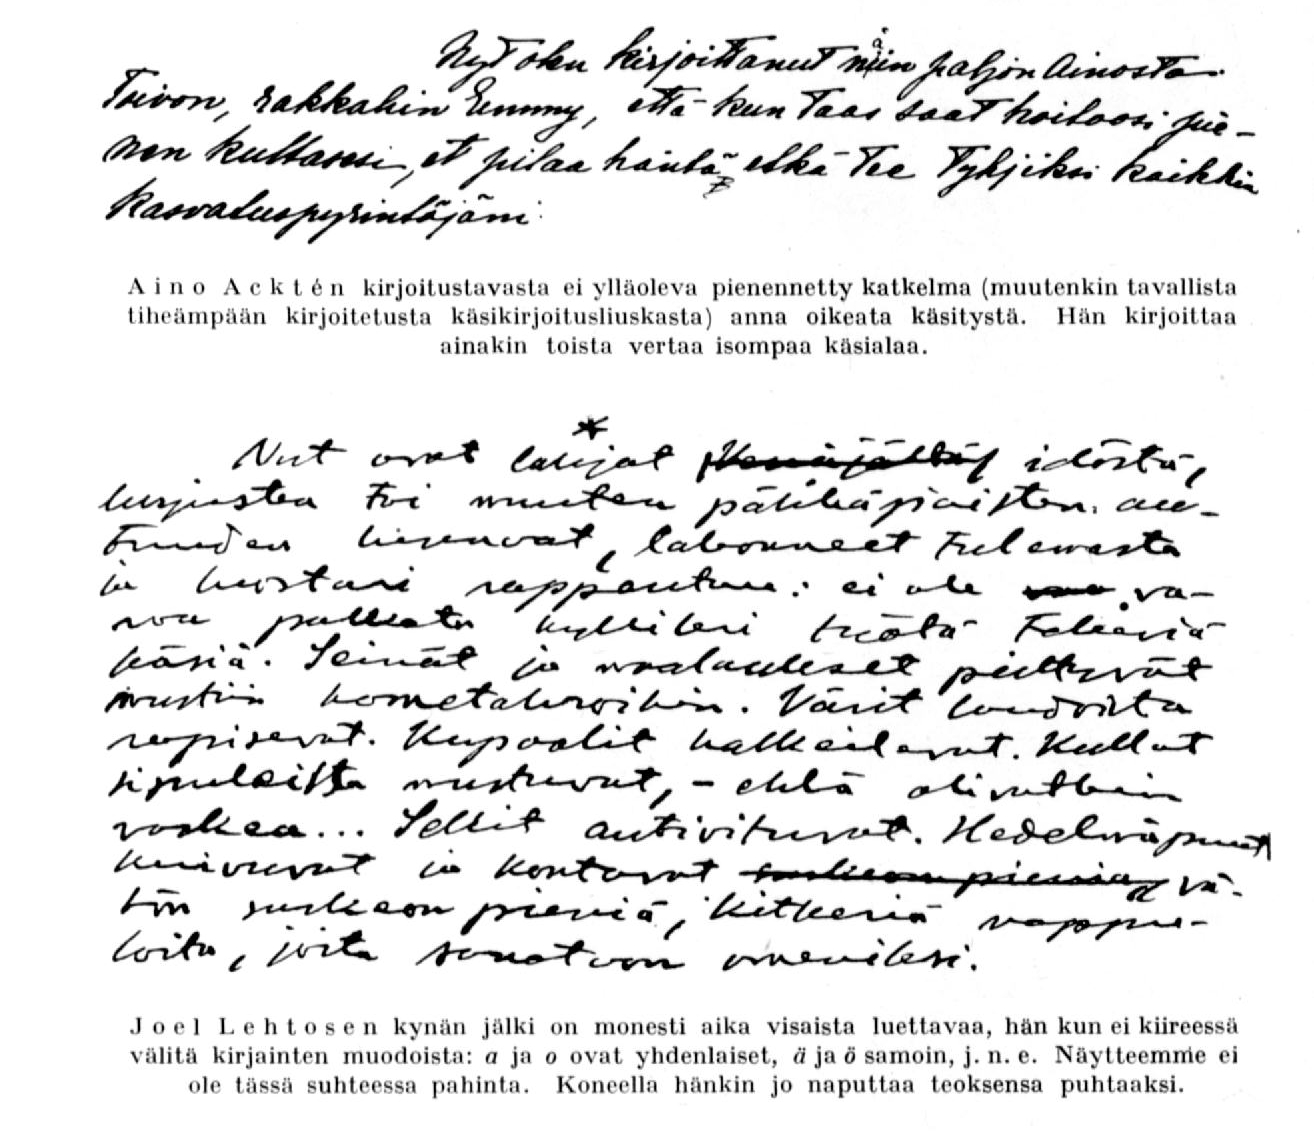 Nyt olen kirjoittanut niin paljon Ainosta.
Toivon, rakkahin Emmy, että kun taas saat hoitoosi pie-
nen kultasesi, et pilaa häntä etkä tee tyhjiksi kaikkia
kasvatuspyrintöjäni.
Aino Acktén kirjoitustavasta ei ylläoleva pienennetty katkelma (muutenkin tavallista
tiheämpään kirjoitetusta käsikirjoitusliuskasta) anna oikeata käsitystä. Hän kirjoittaa
ainakin toista vertaa isompaa käsialaa.
*
Nut ovat lahjat idästä,
kurjuutta toi muuten
hupenevat, lakonneet
ja rappeutuu: ei ole va-
roa palkata kylliksi työtä tekeviä
käsiä. Seinät ja maalaukset peittyvät
mustiin hometahroihin. Värit
rapisevat. Kupoolit halkeilevat. Kullat
sipuleista mustuvat, - ehkä olivatkin
vaskea... Sellit autioituvat. Hedelmäpuut
kuivuvat ja kantavat vä-
hän surkean pieniä, kitkeriä rappu-
loita, joita sanotaan omeniksi.
Joel Lehtosen kynän jälki on monesti aika visaista luettavaa, hän kun ei kiireessä
välitä kirjainten muodoista: a ja o ovat yhdenlaiset, ä ja ö samoin, j. n. e. Näytteemme ei
ole tässä suhteessa pahinta. Koneella hänkin jo naputtaa teoksensa puhtaaksi.